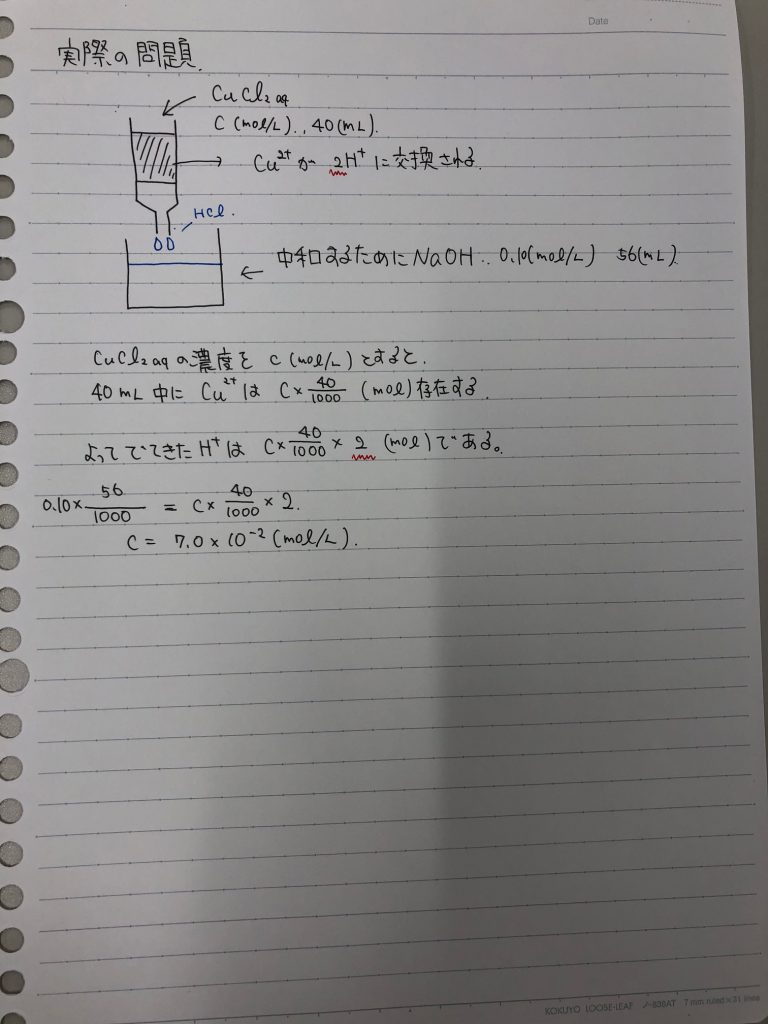 Date
実際の問題.
CuCl₂aq
C (mol/L)‥40(mL).
Cu²⁺が 2H⁺に交換される.
HCl.
← 中和するためにNaOH‥0.10(mol/L) 56(mL)
CuCl₂aqの濃度を C (mol/L)とすると.
40 mL 中に Cu²⁺は C×40/1000 (mol)存在する.
よって でてきた H⁺は C×40/1000×2 (mol)である。
0.10×56/1000 = C×40/1000×2.
C = 7.0×10⁻² (mol/L).
KOKUYO LOOSE-LEAF ノ-836AT 7 mm ruled×31 lines